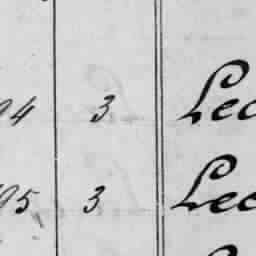 94 3 Leo
95 3 Leo